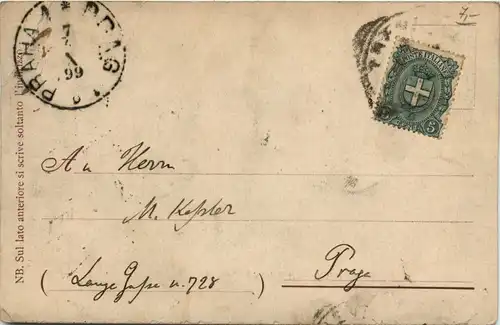 7,-
PRAHA 1 * PRAG
7
1
99
POSTE ITALIANE
5
NB. Sul lato anteriore si scrive soltanto l'indirizzo
An Herrn
M. Kessler
(Lange Gasse n. 728)
Praga